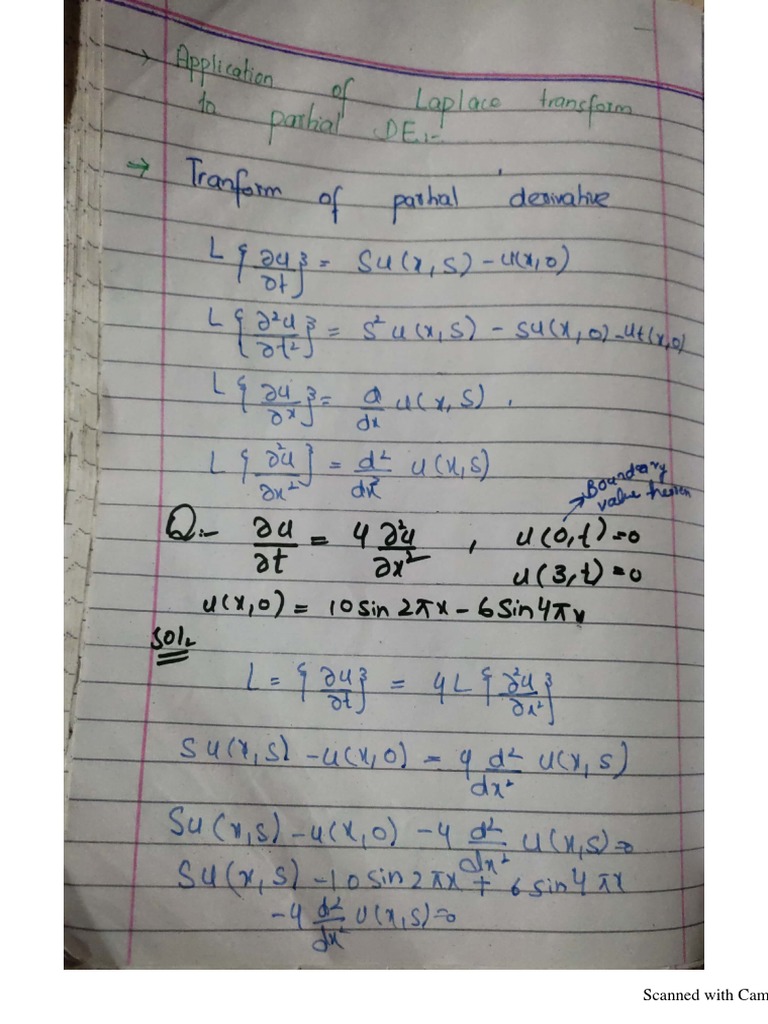 → Application of Laplace transform
to partial DE:-
→ Tranform of partial derivative
L{∂u/∂t} = Su(x,s) - u(x,0)
L{∂²u/∂t²} = s²u(x,s) - su(x,0) - ut(x,0)
L{∂u/∂x} = d/dx u(x,s).
L{∂²u/∂x²} = d²/dx² u(x,s)
→ Boundary
value
Q:- ∂u/∂t = 4 ∂²u/∂x² , u(0,t)=0
u(3,t)=0
u(x,0) = 10 sin 2πx - 6 sin 4πx
Sol:
L = {∂u/∂t} = 4L{∂²u/∂x²}
Su(x,s) - u(x,0) = 4 d²/dx² u(x,s)
Su(x,s) - u(x,0) - 4 d²/dx² u(x,s)=0
Su(x,s) - 10 sin 2πx + 6 sin 4πx
- 4 d²/dx² u(x,s)=0
Scanned with Cam